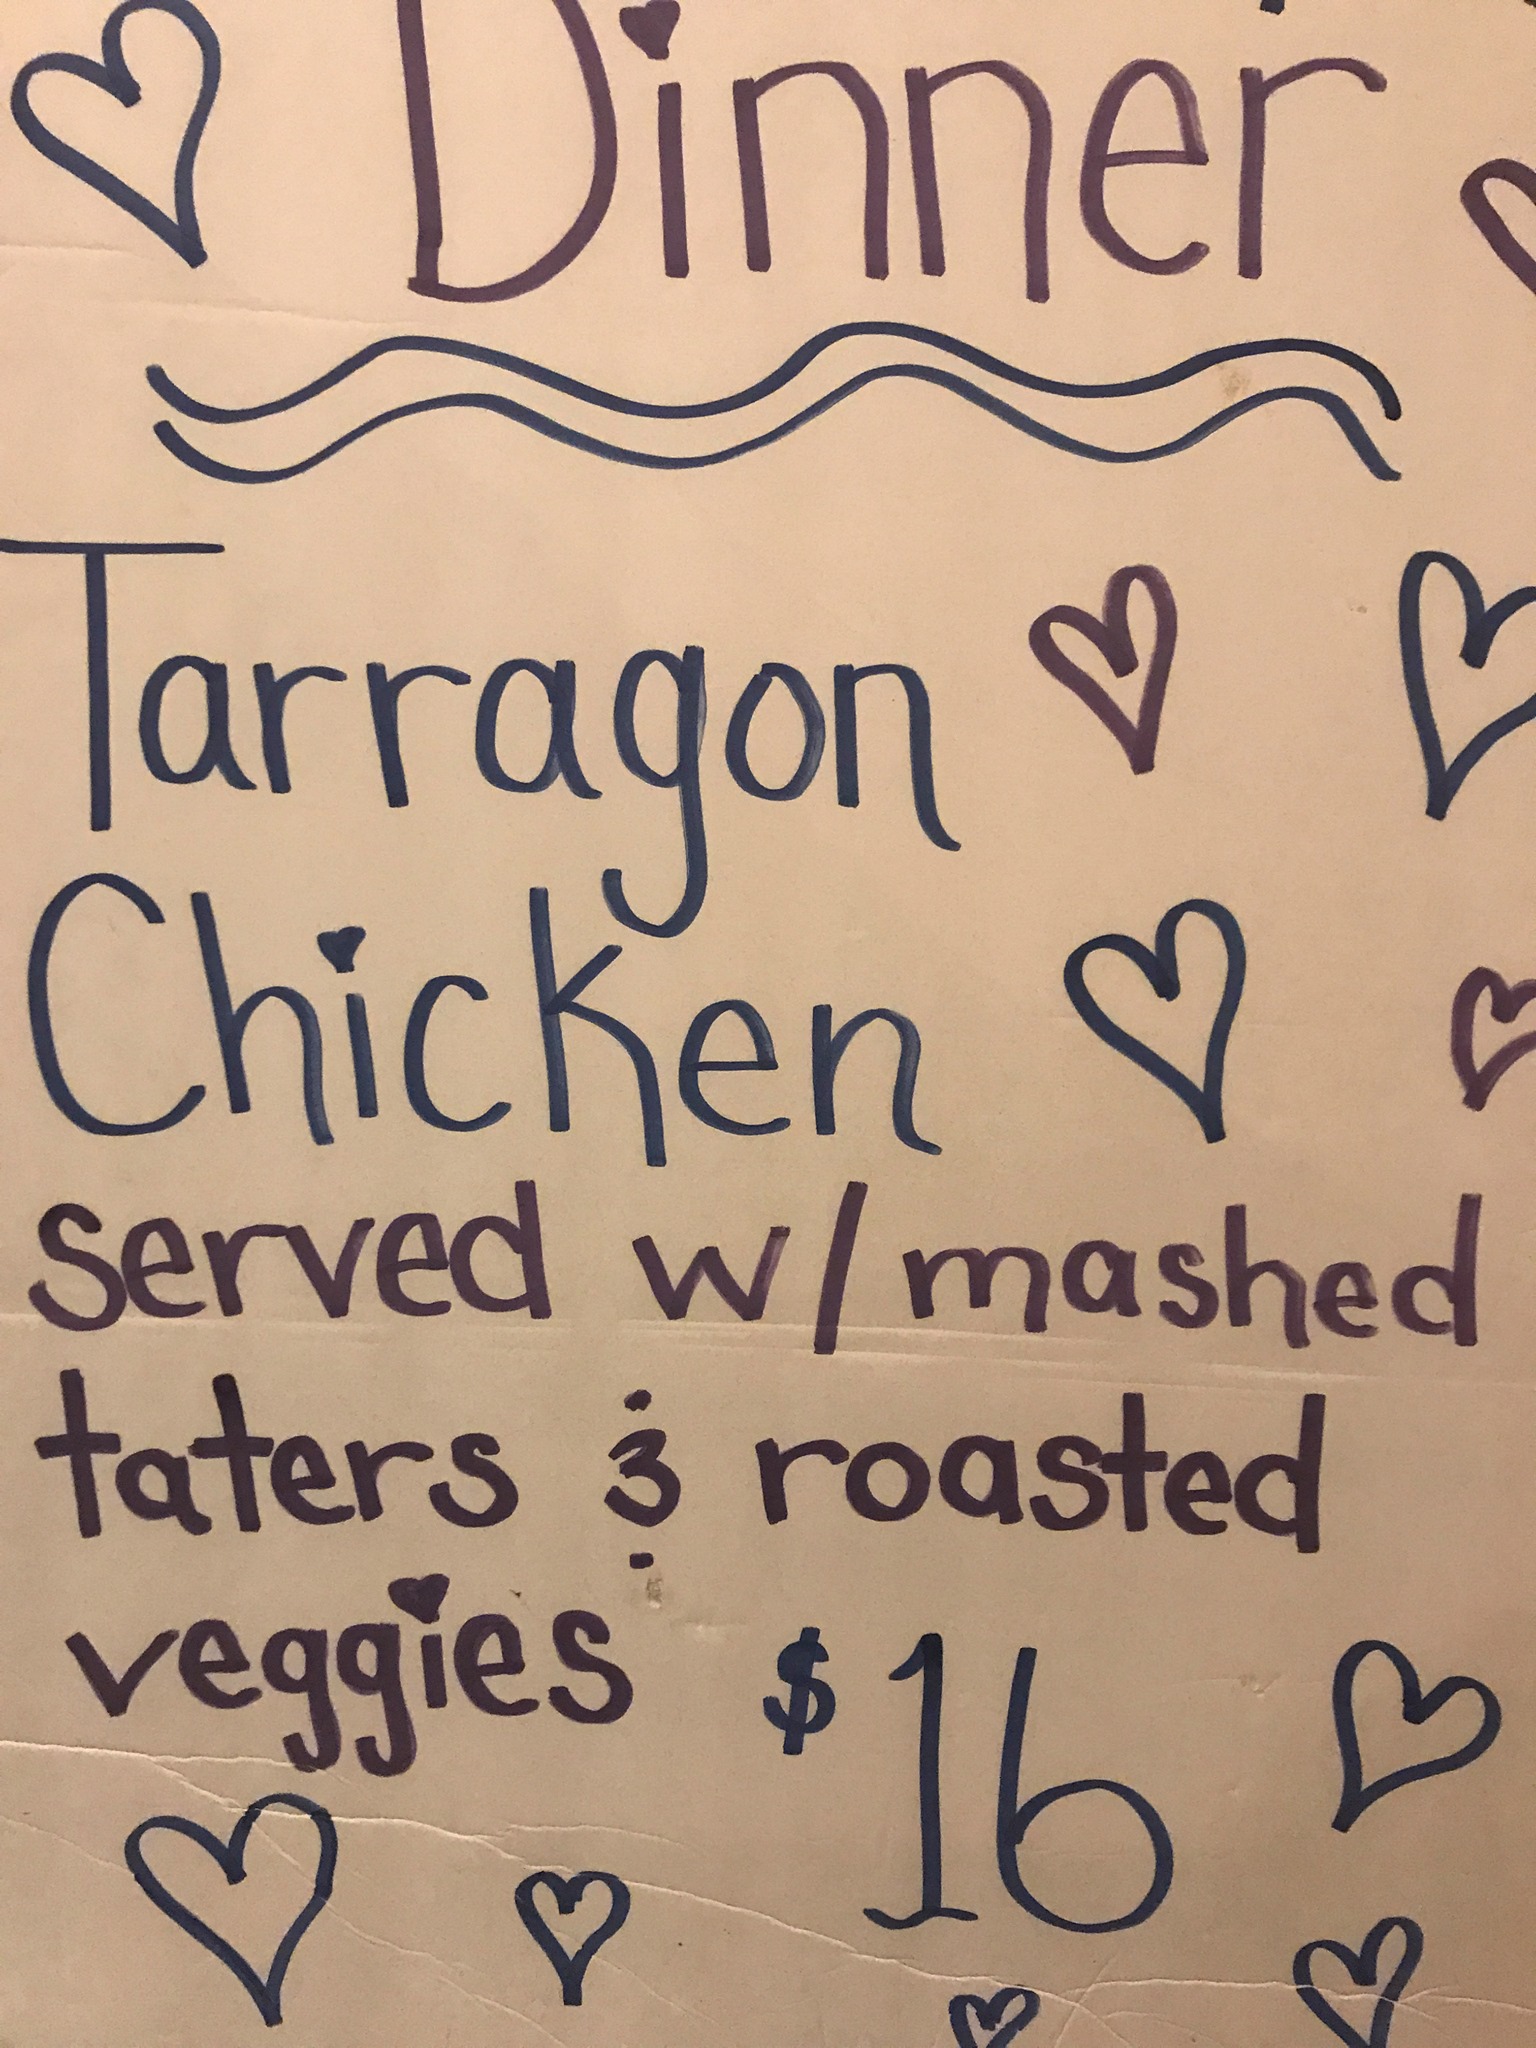 Dinner
Tarragon
Chicken
served w/mashed
taters & roasted
veggies $16